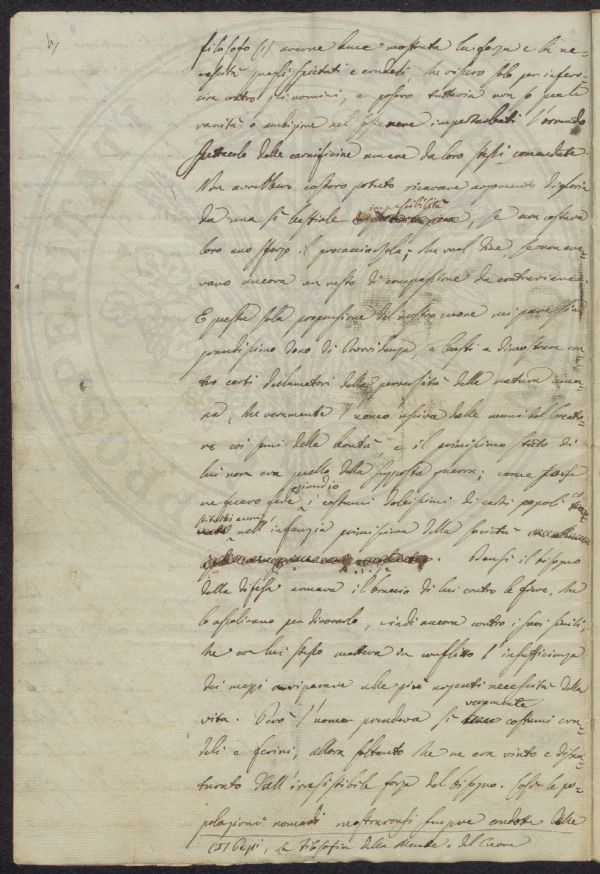 4)
filosofo (1) averne luce mostrata la forza e la ne=
cessità quegli spietati e crudeli, che vissero solo per infero=
cire contro gli uomini, e posero tuttavia non so quale
vanità o ambizione nel sostenere imperturbati l'orrendo
spettacolo delle carnificine umane da loro stessi comandate.
Non avrebbero costoro potuto ricavare argomento di gloria
da una sì bestiale impassibilità, se non costava
loro uno sforzo il procacciarsela; che val dire, se non ave=
vano ancora un resto di compassione da contravvenire.
E questa sola propensione del nostro cuore mi pare sia
grandissimo dono di Provvidenza, e basti a dimostrare con=
tro certi declamatori della perversità della natura uma=
na, che veramente l'uomo usciva dalle mani del Creato=
re coi semi della bontà, e il primissimo stato di
lui non era quello della supposta guerra; come
ne fecero fede eziandio i costumi dolcissimi di certi popoli
nell'infanzia primissima della società
. Bensì il bisogno
della difesa armava il braccio di lui contro le fiere, che
lo assalivano per divorarlo, indi ancora contro i suoi simili,
che con lui stesso metteva in conflitto l'insufficienza
dei mezzi a riparare alle più urgenti necessità della
vita. Però l'uomo prendeva sì veramente costumi cru=
deli e ferini, allora soltanto che ne era vinto e disna=
turato dall'irresistibile forza del bisogno. Così le po=
polazioni nomadi mostraronsi sempre crudeli
(1) la Filosofia della Mente e del Cuore